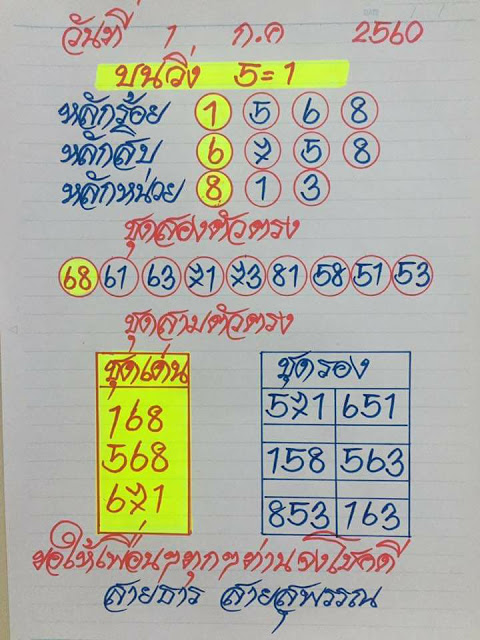 วันที่ 1 ก.ค 2560
บนวิ่ง 5=1
หลักร้อย 1 5 6 8
หลักสิบ 6 7 5 8
หลักหน่วย 8 1 3
ชุดสองตัวตรง
68 61 63 71 73 81 58 51 53
ชุดสามตัวตรง
ชุดเด่น
168
568
671
ชุดรอง
571 651
158 563
853 163
ขอให้เพื่อนๆทุกๆท่านจงโชคดี
สายธาร สายสุพรรณ